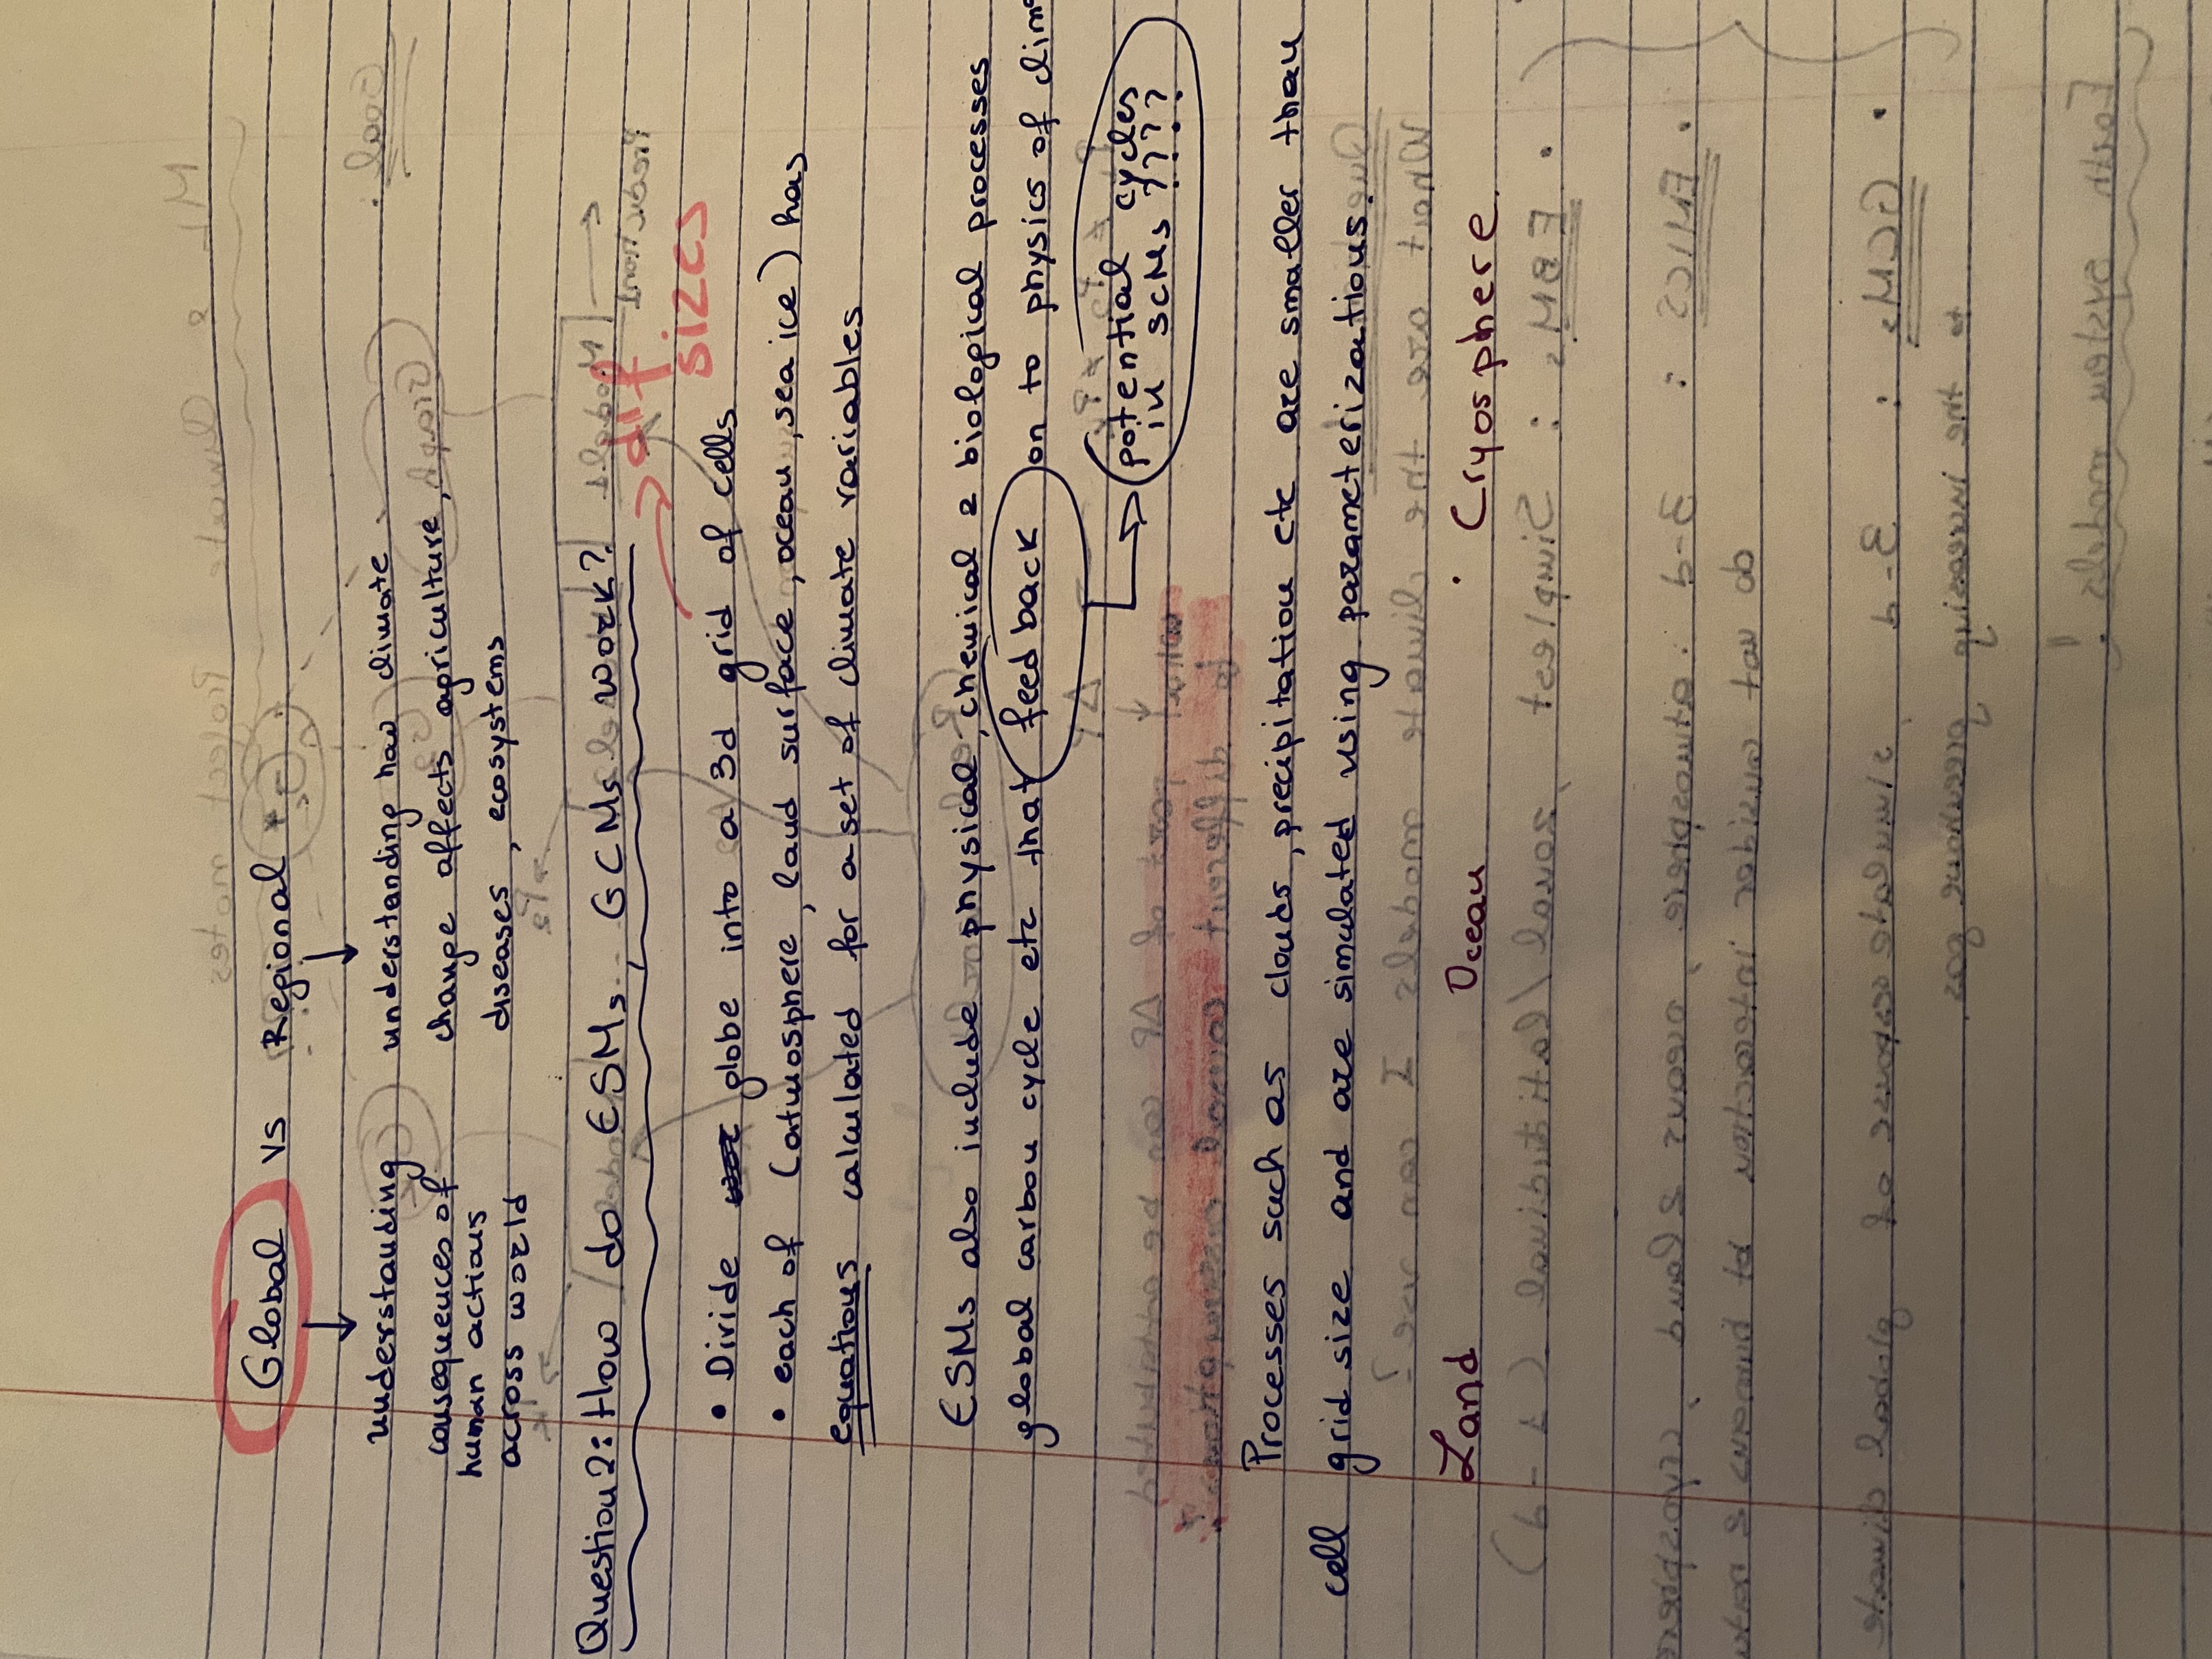 Global vs Regional
understanding understanding how climate
consequences of change affects agriculture,
human actions diseases, ecosystems
across world
Question 2: How do ESMs, GCMs work?
dif
sizes
• Divide globe into a 3d grid of cells
• each of (atmosphere, land surface, ocean, sea ice) has
equations calculated for a set of climate variables
ESMs also include physical, chemical & biological processes
global carbon cycle etc that feed back on to physics of
potential cycles
in SCMs ????
Processes such as clouds, precipitation etc are smaller than
cell grid size and are simulated using parameterizations.
Land Ocean Cryosphere.